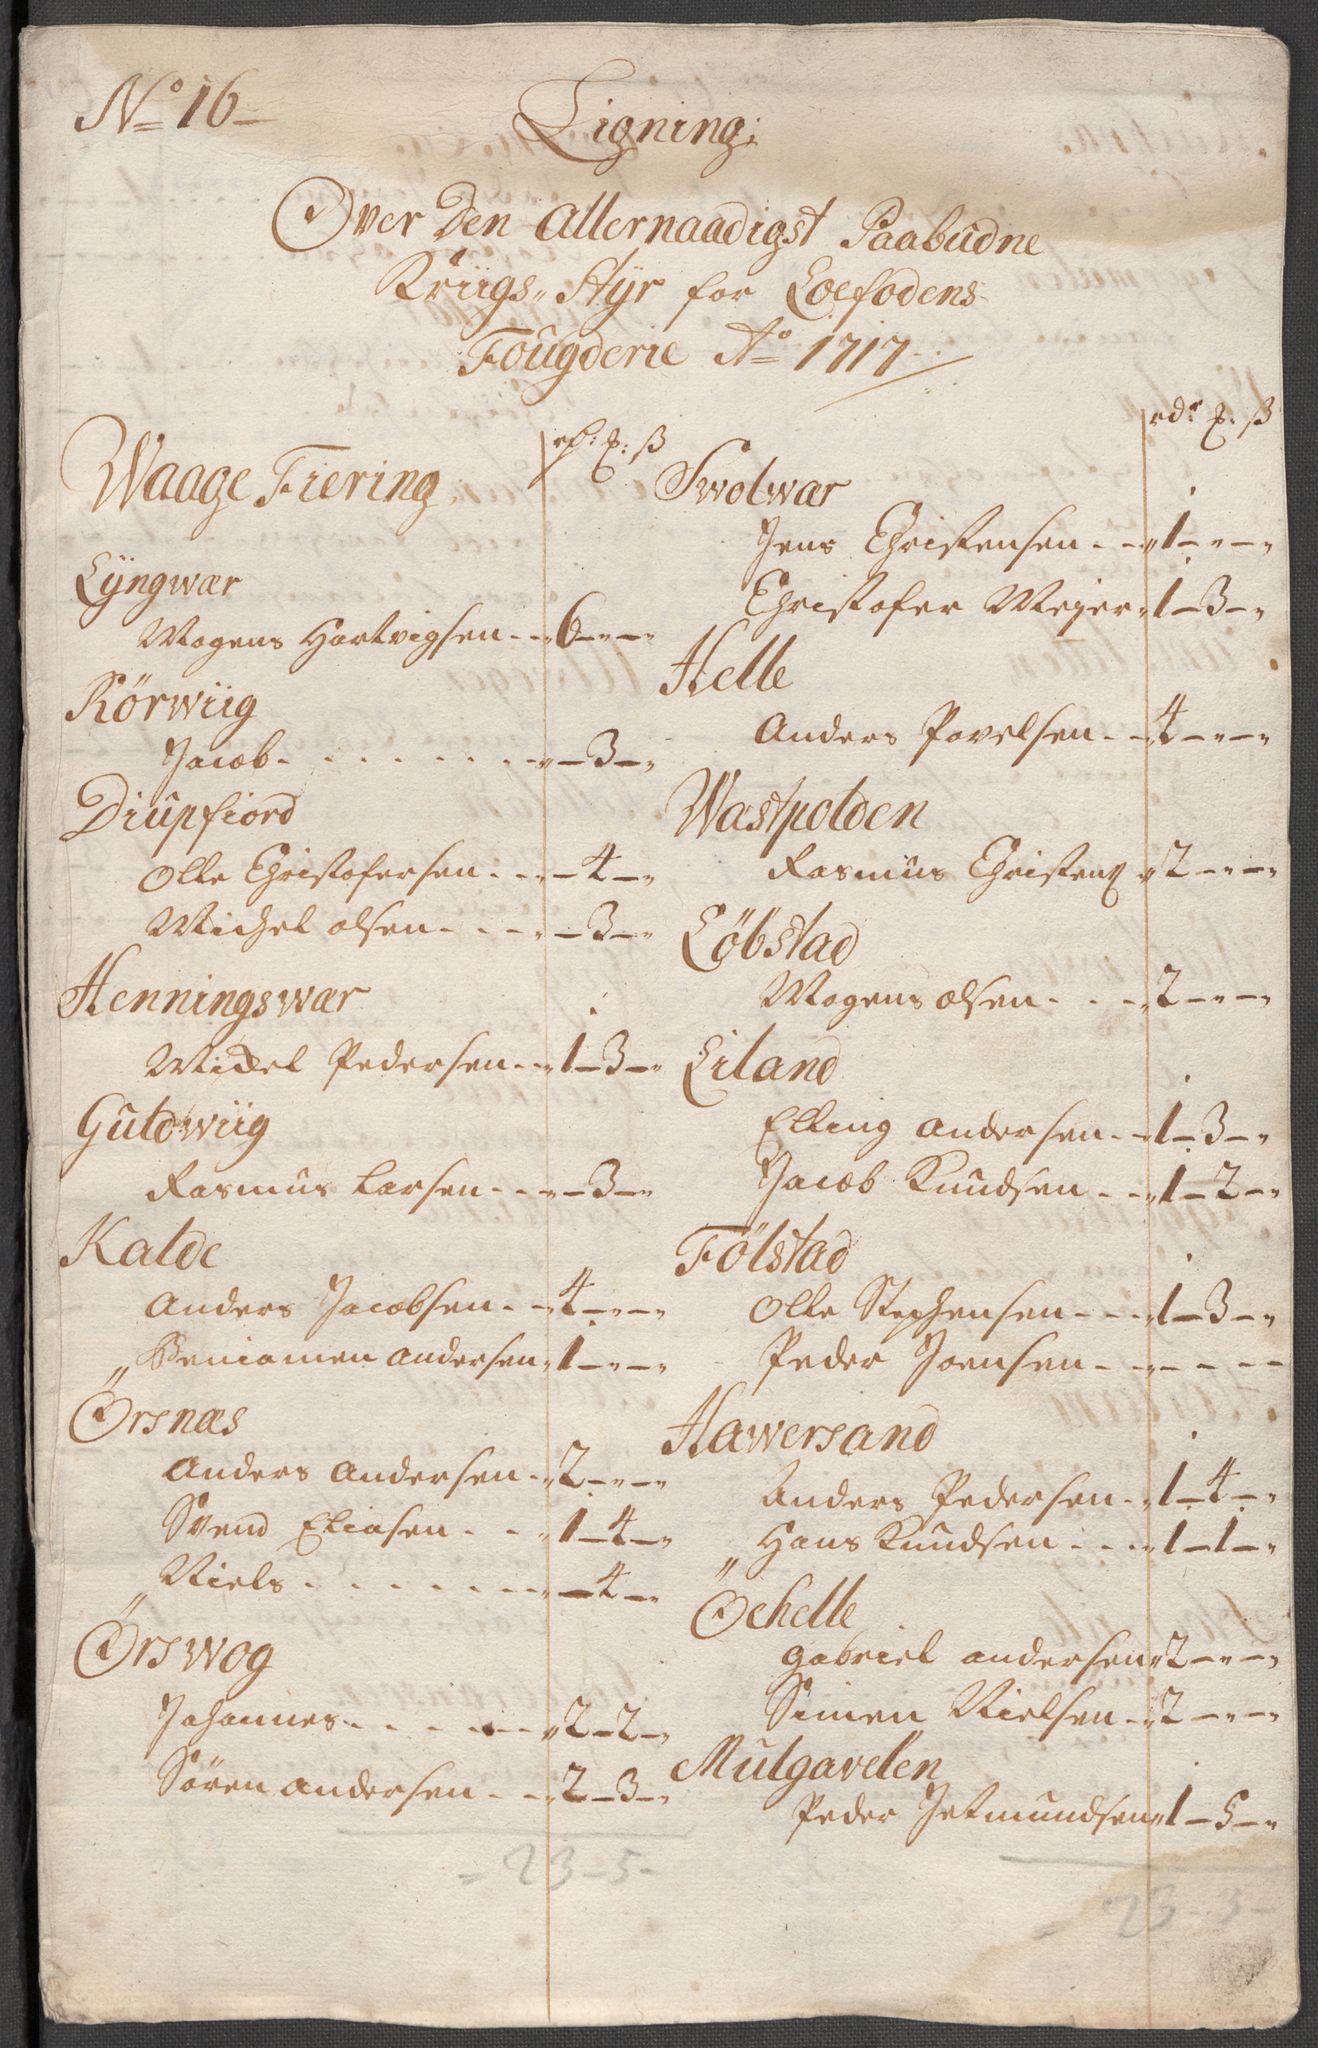 No 16
Ligning;
Over Den Allernaadigst Paabudne
Kriigs-Styr for Loefodens
Fougderie Ao 1717
Waage Fiering
Lyngwær
Mogens Hartvigsen - - 6 - - -
Rörwiig
Jacob - - - - 3 -
Diupfiord
Olle Christofersen - - - 4 -
Michel olsen - - - 3 -
Henningswær
Michel Pedersen - - 1 - 3 -
Guldwiig
Rasmus Larsen - - - 3 -
Kalde
Anders Jacobsen - - 4 - - -
Beniamen Andersen 1 - - -
Örsnæs
Anders Andersen - 2 - - -
Svend Eliasen - - 1 - 4 -
Niels - - - - 4 -
Örswog
Johannes - - - 2 - 2 -
Sören Andersen - - 2 - 3 -
- 23 - 5 -
rdr ß
Swolwær
Jens Christensen - - 1 - - -
Christofer Meyer 1 - 3 -
Helle
Anders Povelsen - - 4 - - -
Wastpolden
Rasmus Christens 2 - - -
Löbstad
Mogens olsen - - - 2 - - -
Eiland
Elling Andersen - - 1 - 3 -
Jacob Knudsen - - 1 - 2 -
Fölstad
Olle Stephensen - - - 1 - 3 -
Peder Joensen - - - - - -
Hawersand
Anders Pedersen - 1 - 4 -
Hans Knudsen - - - 1 - 1 -
Öehelle
Gabriel Andersen 2 - - -
Simen Nielsen - 2 - - -
Mulgavelen
Peder Jetmundsen 1 - 5 -
- 23 - 3 -